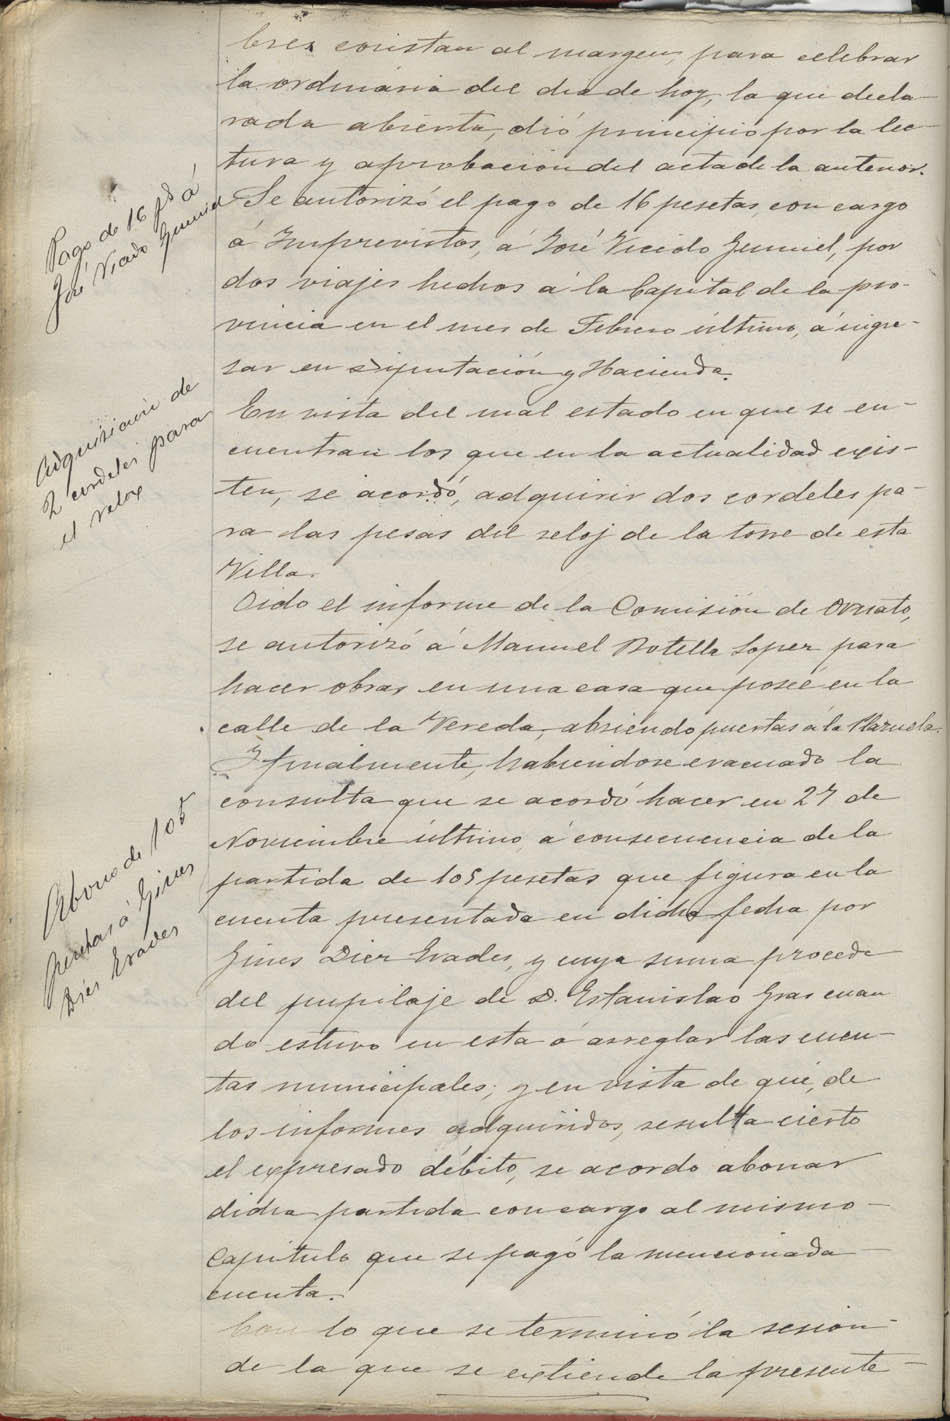 bres constan al margen, para celebrar
la ordinaria del dia de hoy, la que decla-
rada abierta, dió principio por la lec-
tura y aprobacion del acta de la anterior.
Pago de 16 ps á
José Vicedo Jumiel
Se autorizó el pago de 16 pesetas, con cargo
á Imprevistos, á José Vicedo Jumiel, por
dos viajes hechos á la Capital de la pro-
vincia en el mes de Febrero último, á ingre-
sar en Diputación y Hacienda.
Adquisicion de
2 cordeles para
el relox
En vista del mal estado en que se en-
cuentran los que en la actualidad exis-
ten, se acordó, adquirir dos cordeles pa-
ra las pesas del reloj de la torre de esta
Villa.
Oido el informe de la Comisión de Ornato,
se autorizó á Manuel Botella Loper para
hacer obras en una casa que poseé en la
calle de la Vereda, abriendo puertas á la Plazuela.
Y finalmente, habiendose evacuado la
consulta que se acordó hacer en 27 de
Noviembre último, á consecuencia de la
Abono de 105
pesetas á Gines
Dies Evades
partida de 105 pesetas que figura en la
cuenta presentada en dicha fecha por
Gines Dier Evades, y cuya suma procede
del pupilaje de D. Estanislao Gras cuan
do estuvo en esta á arreglar las cuen-
tas municipales; y en vista de que, de
los informes adquiridos, resulta cierto
el expresado débito, se acordo abonar
dicha partida con cargo al mismo
Capitulo que se pagó la mencionada
cuenta.
Con lo que se terminó la sesion
de la que se extiende la presente